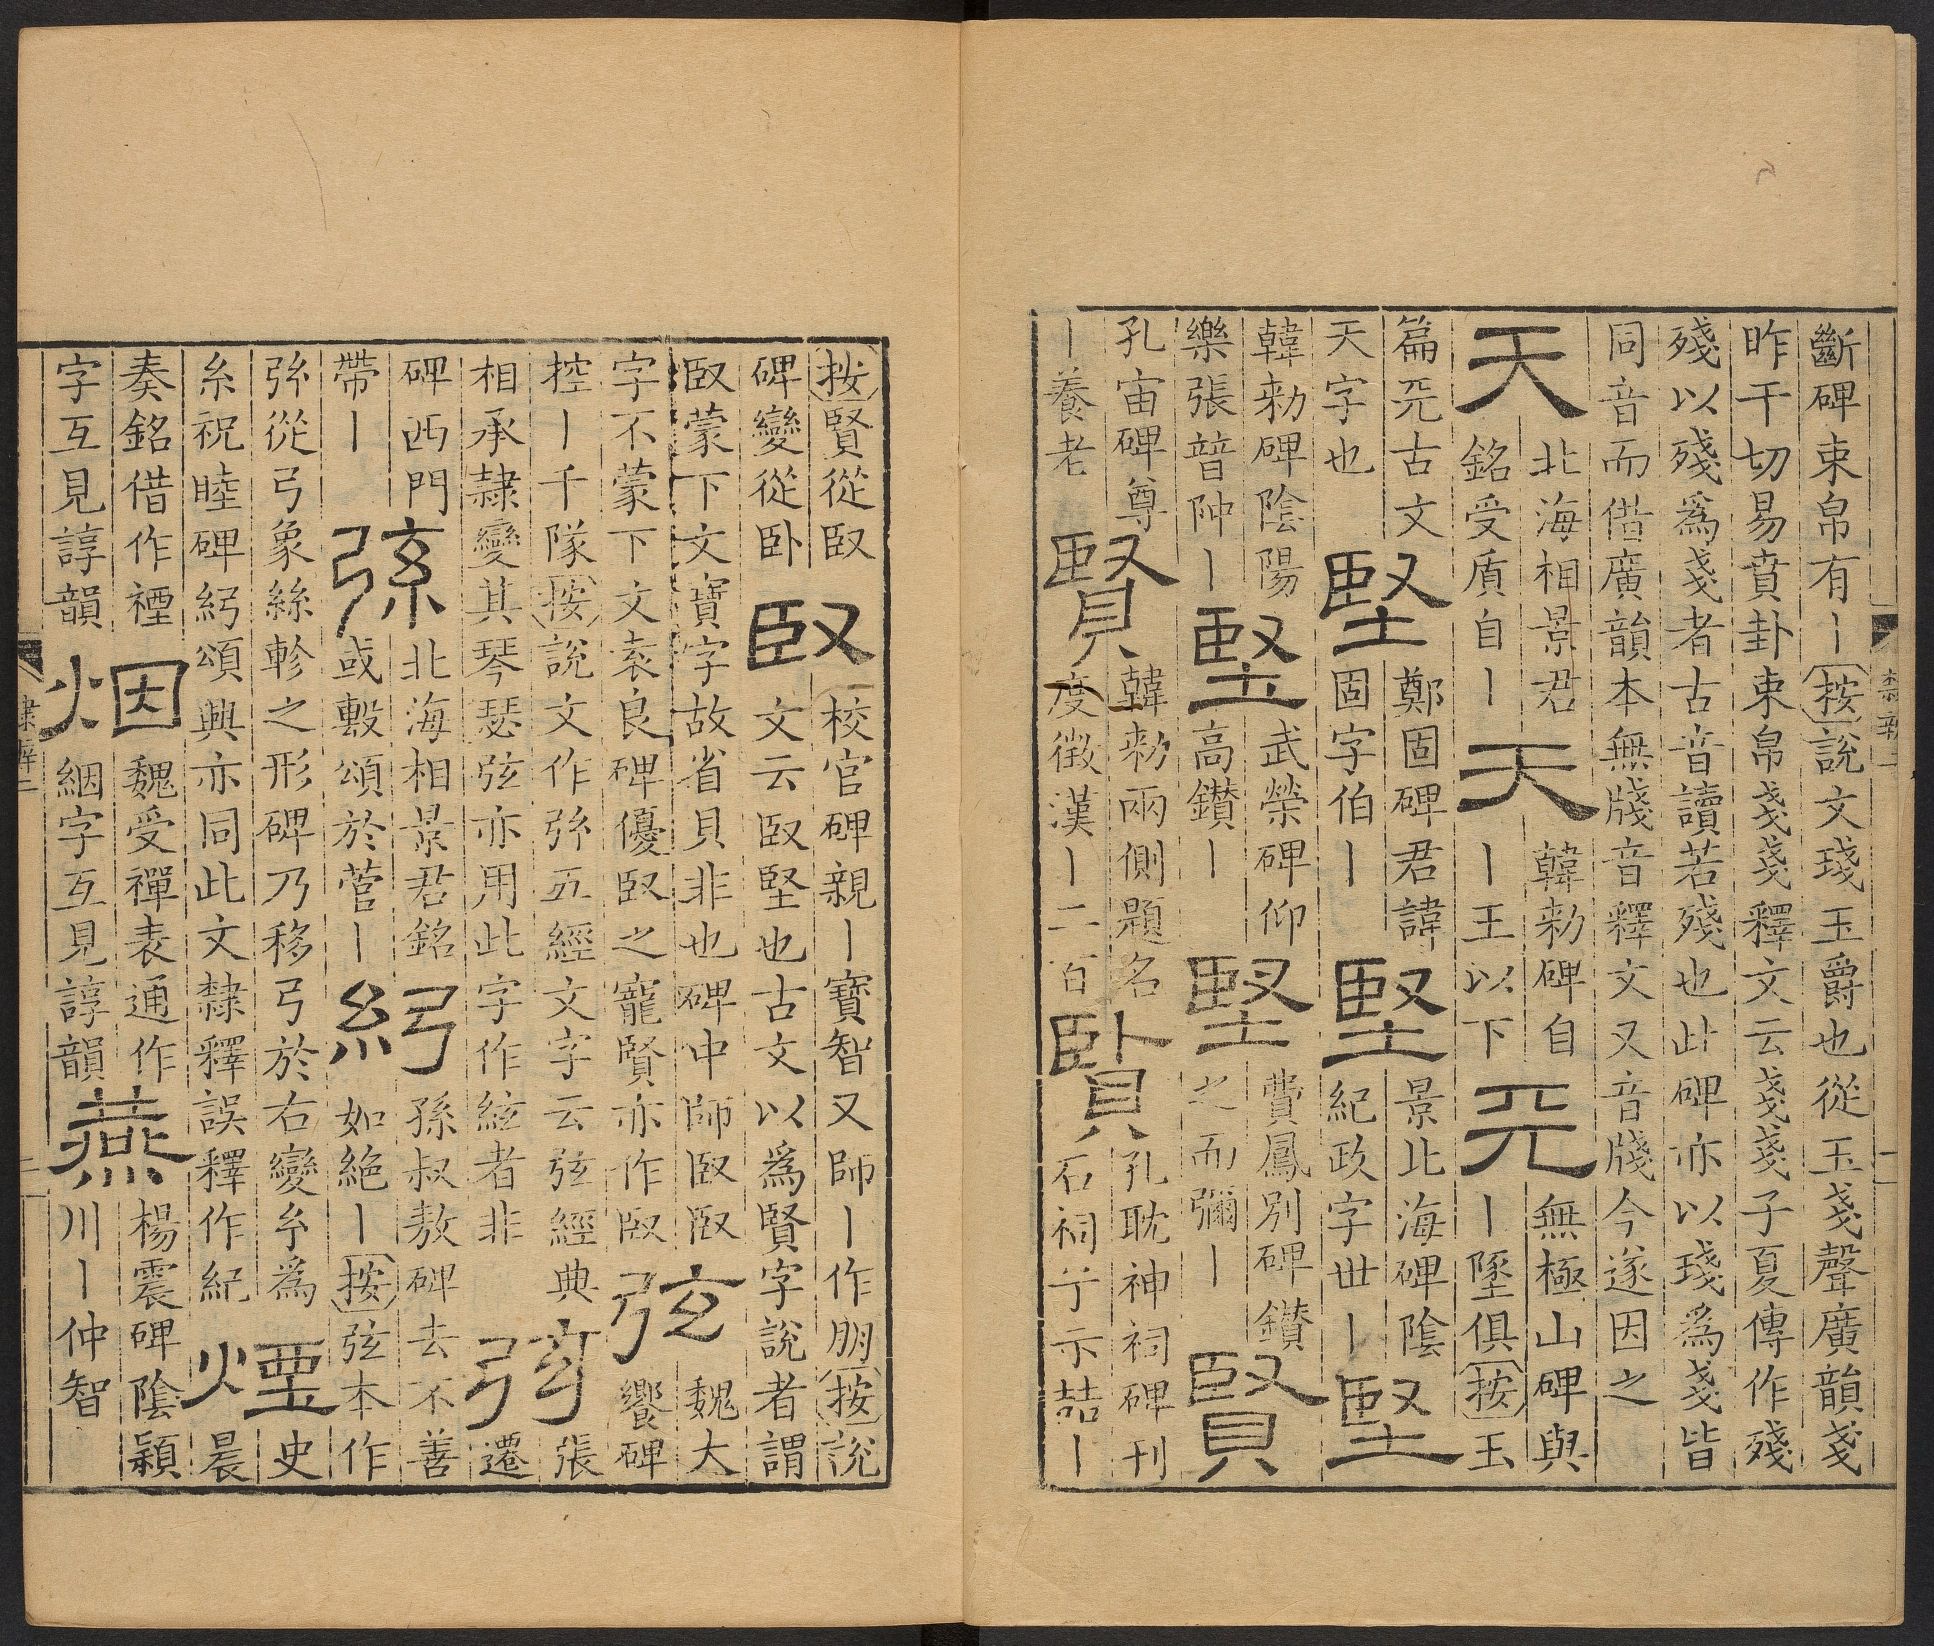 斷碑束帛有丨按說文琖玉爵也從玉戔聲廣韻戔
昨干切易賁卦束帛戔戔釋文云戔戔子夏傳作殘
殘以殘爲戔者古音讀若殘也此碑亦以琖爲戔皆
同音而借廣韻本無牋音釋文又音牋今遂因之
天
北海相景君
銘受質自丨
天
韓勑碑自
丨王以下
兲
無極山碑與
丨墜俱按玉
篇兲古文
天字也
堅
鄭固碑君諱
固字伯丨
堅
景北海碑陰
紀政字世丨
堅
韓勑碑陰陽
樂張普仲丨
堅
武榮碑仰
高鑽丨
堅
費鳳別碑鑽
之而彌丨
賢
孔宙碑尊
丨養老
賢
韓勑兩側題名
度徵漢丨二百
賢
孔耽神祠碑刊
石祠兮示喆丨
隸辨二
按賢從臤
碑變從臥
臤
校官碑親丨寶智又師丨作朋按說
文云臤堅也古文以爲賢字說者謂
臤蒙下文寶字故省貝非也碑中師臤臤
字不蒙下文袁良碑優臤之寵賢亦作臤
弦
魏大
饗碑
控丨千隊按說文作弦五經文字云弦經典
相承隸變其琴瑟弦亦用此字作絃者非
弦
張
遷
碑西門
帶丨
弦
北海相景君銘
或㲉頌於菅丨
糿
孫叔敖碑去不善
如絶丨按弦本作
弦從弓象絲軫之形碑乃移弓於右變糸爲
糸祝睦碑糿頌興亦同此文隸釋誤釋作紀
煙
史
晨
奏銘借作禋
字互見諄韻
烟
魏受禪表通作
絪字互見諄韻
燕
楊震碑陰潁
川丨仲智
隸辨二